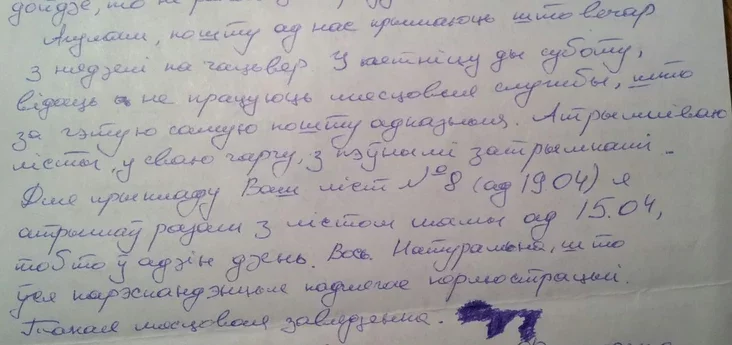 дойдзе, то не
Акрамя, пошту ад нас прымаюць што вечар
з нядзелі па чацьвер. У пятніцу ды суботу,
відаць не працуюць мясцовыя службы, што
за гэтую самую пошту адказныя. Атрымліваю
лісты, у сваю чаргу, з пэўнымі затрымкамі.
Для прыкладу Ваш ліст №8 (ад 19.04) я
атрымаў разам з лістом мамы ад 15.04,
тобто ў адзін дзень. Вось. Натуральна, што
ўся карэспандэнцыя падлягае
Такая мясцовая завядзёнка.